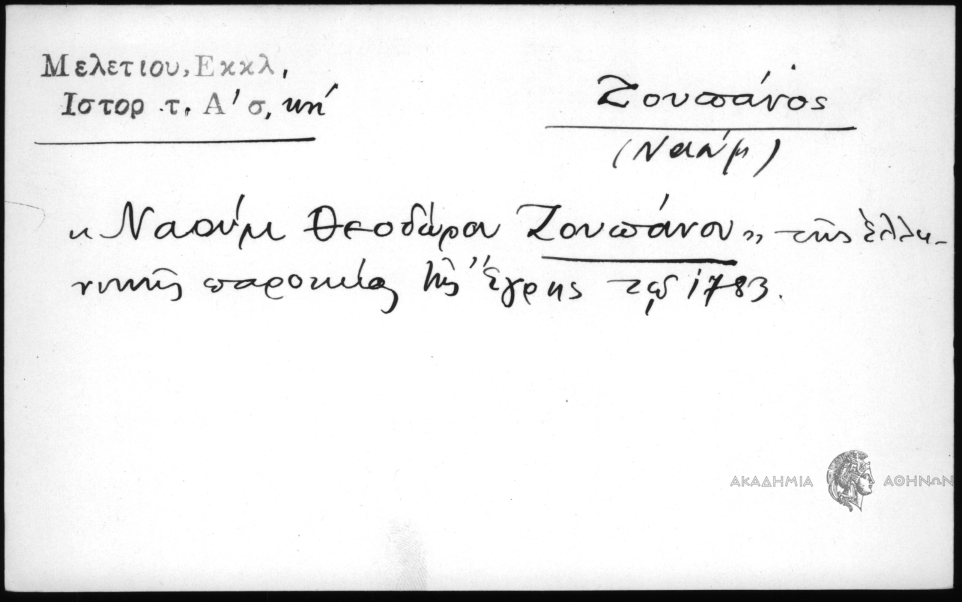 Μελετιου, Εκκλ,
Ιστορ τ. Α' σ, κπή
Ζουπάνος
(Ναούμ)
« Ναούμ Θεοδώρου Ζουπάνου » τῆς ἑλλη-
νικῆς παροικίας τῆς Ἔγρης τῷ 1783.
ΑΚΑΔΗΜΙΑ ΑΘΗΝΩΝ